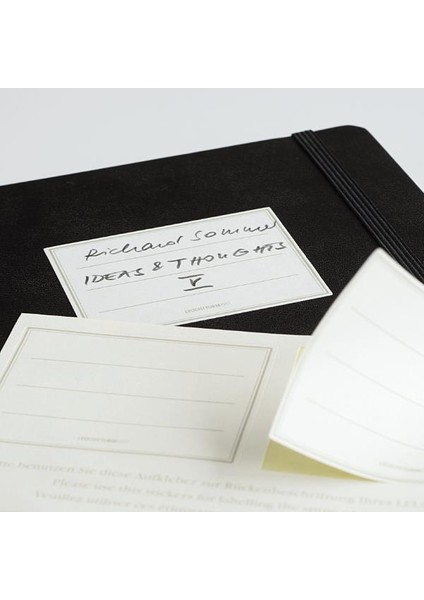 Richard Sommer
IDEAS & THOUGHTS
V
LEUCHTTURM1917
benutzen Sie diese Aufkleber zur Rückenbeschriftung Ihres
Please use this stickers for labelling the
Veuillez utiliser ces